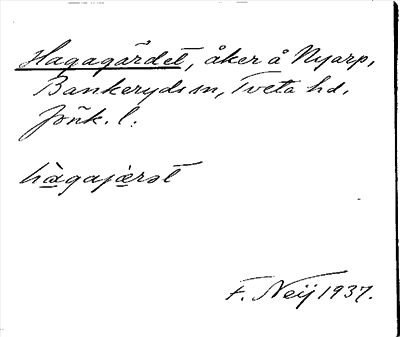 Hagagärdet, åker å Nyarp,
Bankeryds sn, Tveta hd,
Jönk. l.
hàgajærət
F. Neij 1937.